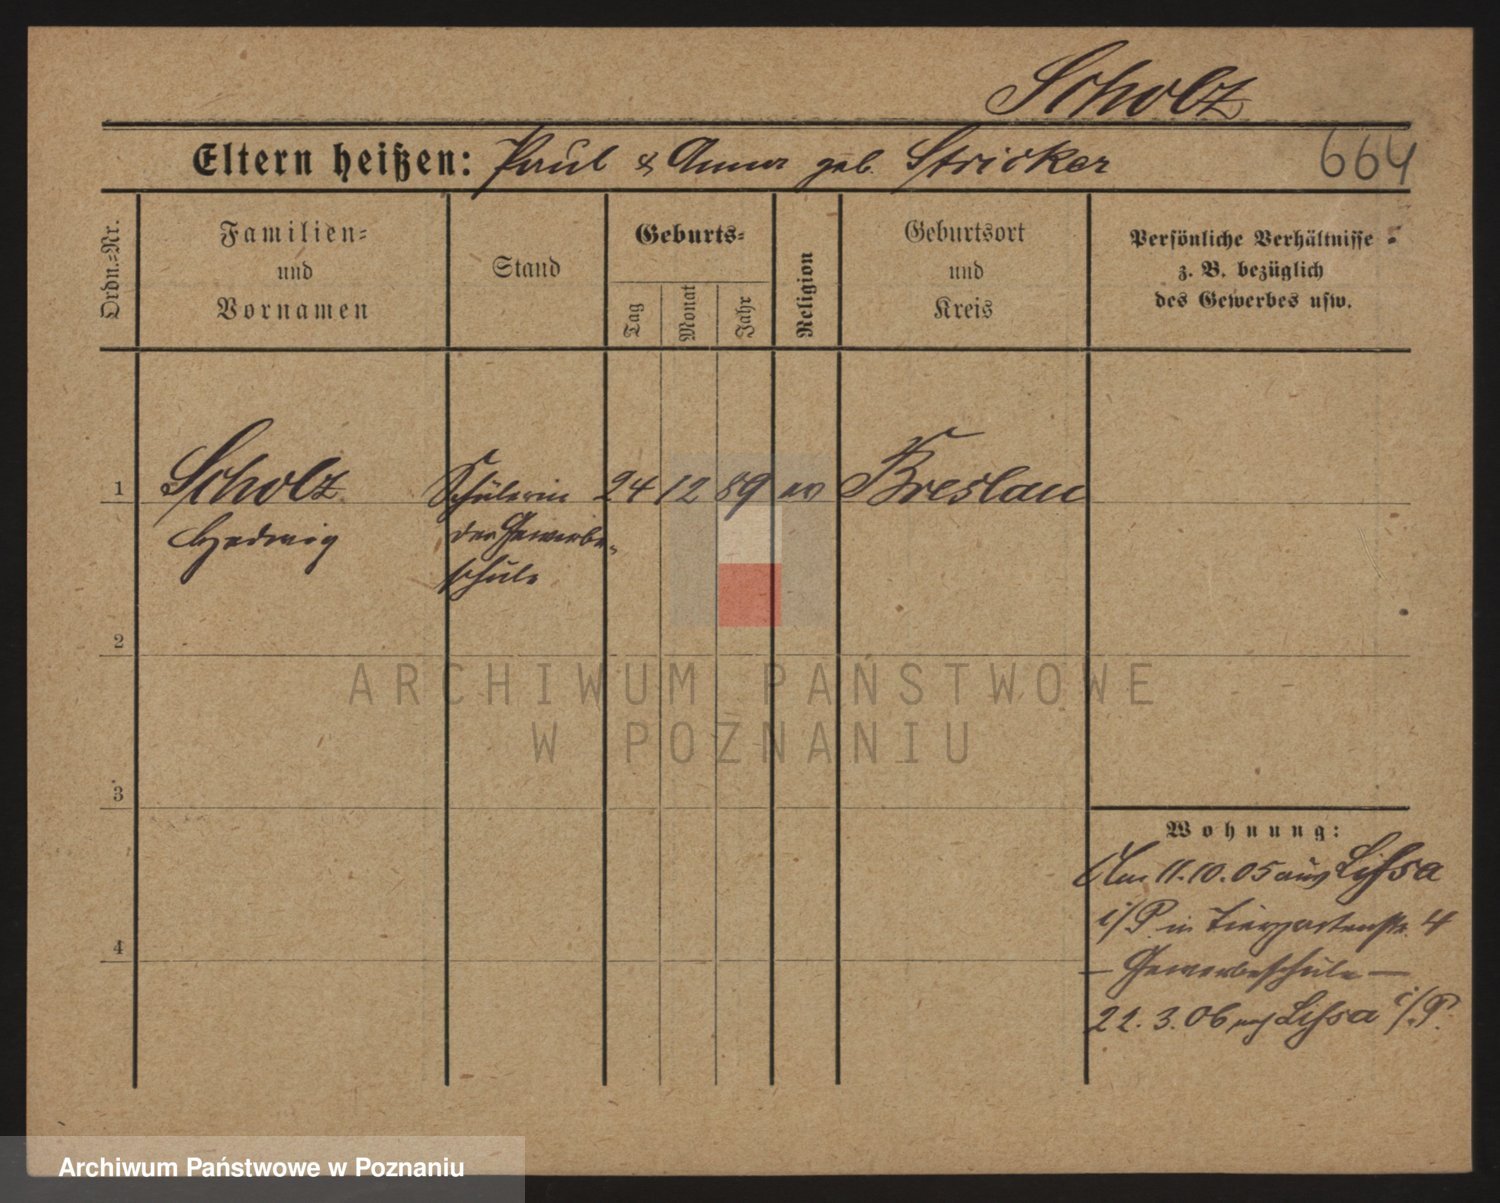 Scholz
Eltern heißen: Paul & Anna geb. Stricker
664
Ordn.=Nr.
Familien=
und
Vornamen
Stand
Geburts=
Tag
Monat
Jahr
Religion
Geburtsort
und
Kreis
Persönliche Verhältnisse
z. B. bezüglich
des Gewerbes usw.
1 Scholz Schülerin 24 12 89 ev Breslau
Hedwig der Gewerbe-
schule
2
3
4
Wohnung:
Am 11.10.05 aus Lissa
i/P in Tiergartenstr. 4
— Gewerbeschule —
22.3.06 nach Lissa i/P.
ARCHIWUM PAŃSTWOWE
W POZNANIU
Archiwum Państwowe w Poznaniu